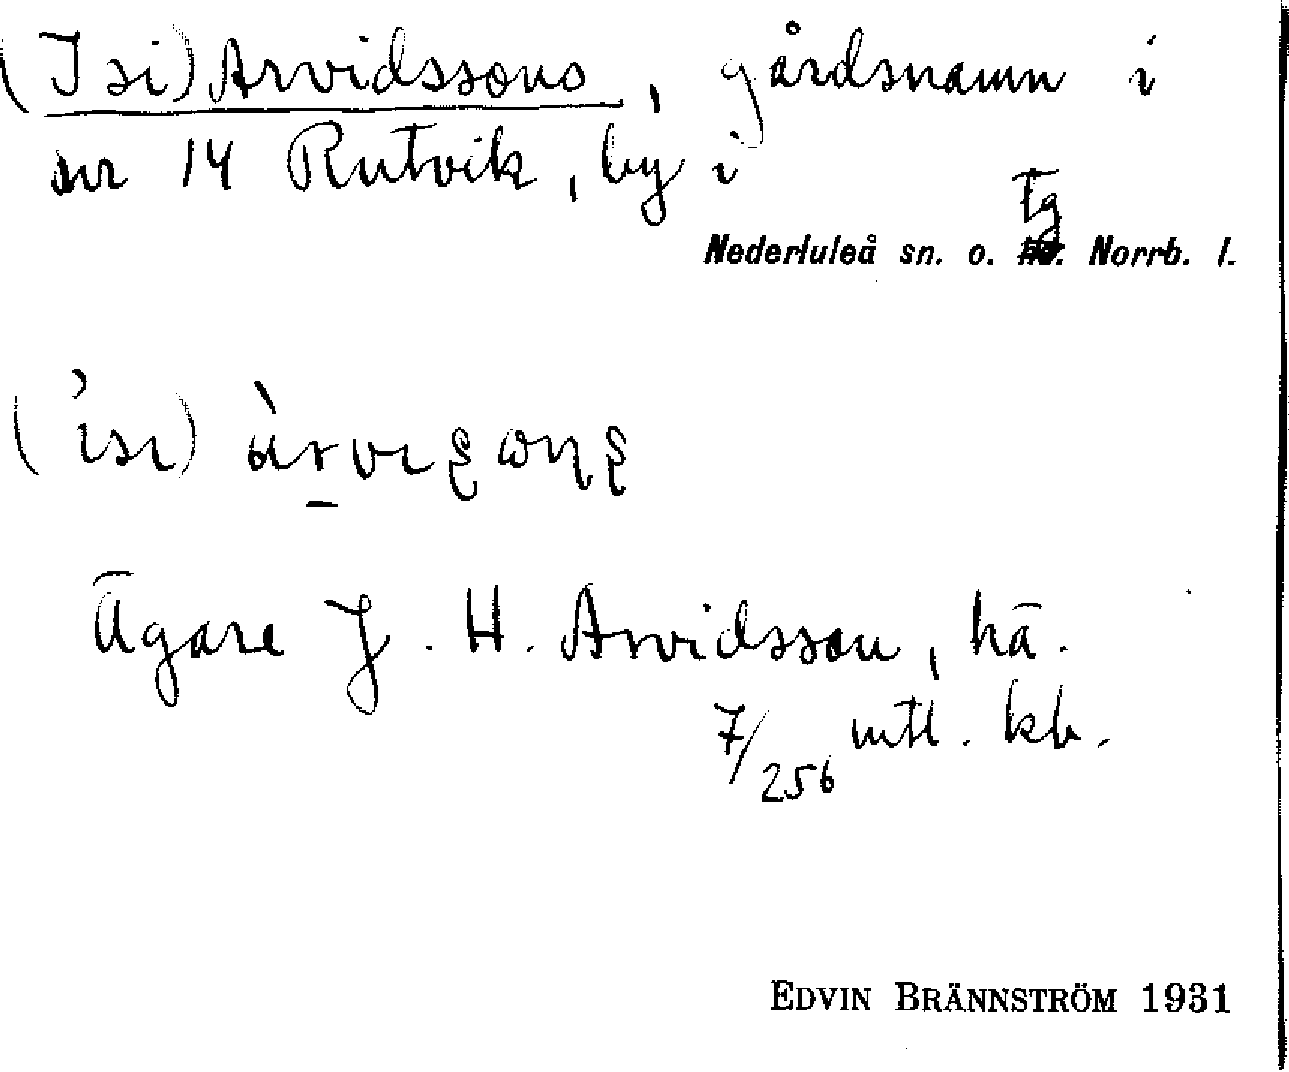 (Isi) Arvidssons, gårdsnamn i
nr 14 Rutvik, by i
Tg
Nederluleå sn. o. Norrb. l.
Ägare J. H. Arvidsson, hä.
7/256 mtl. kb.
EDVIN BRÄNNSTRÖM 1931